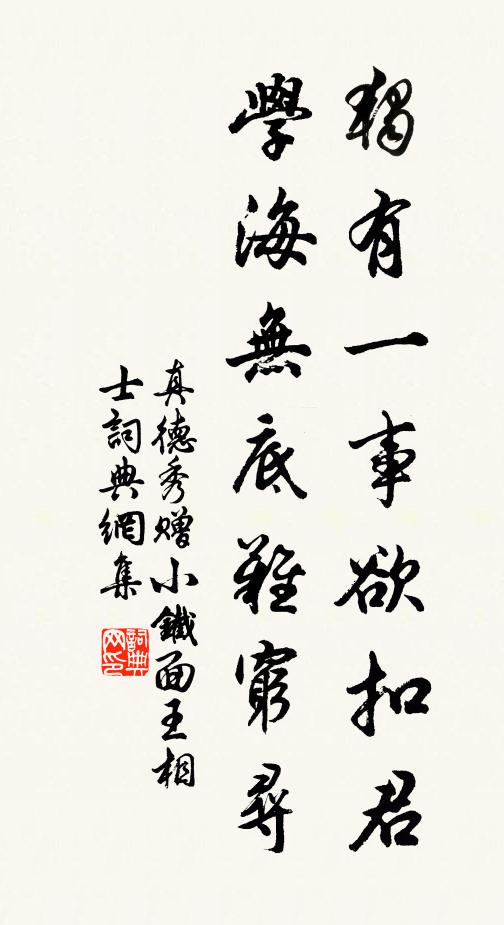 獨有一事欲扣君
學海無底難窮尋
真德秀贈小鐵面王相
士詞典網集
詞典网印